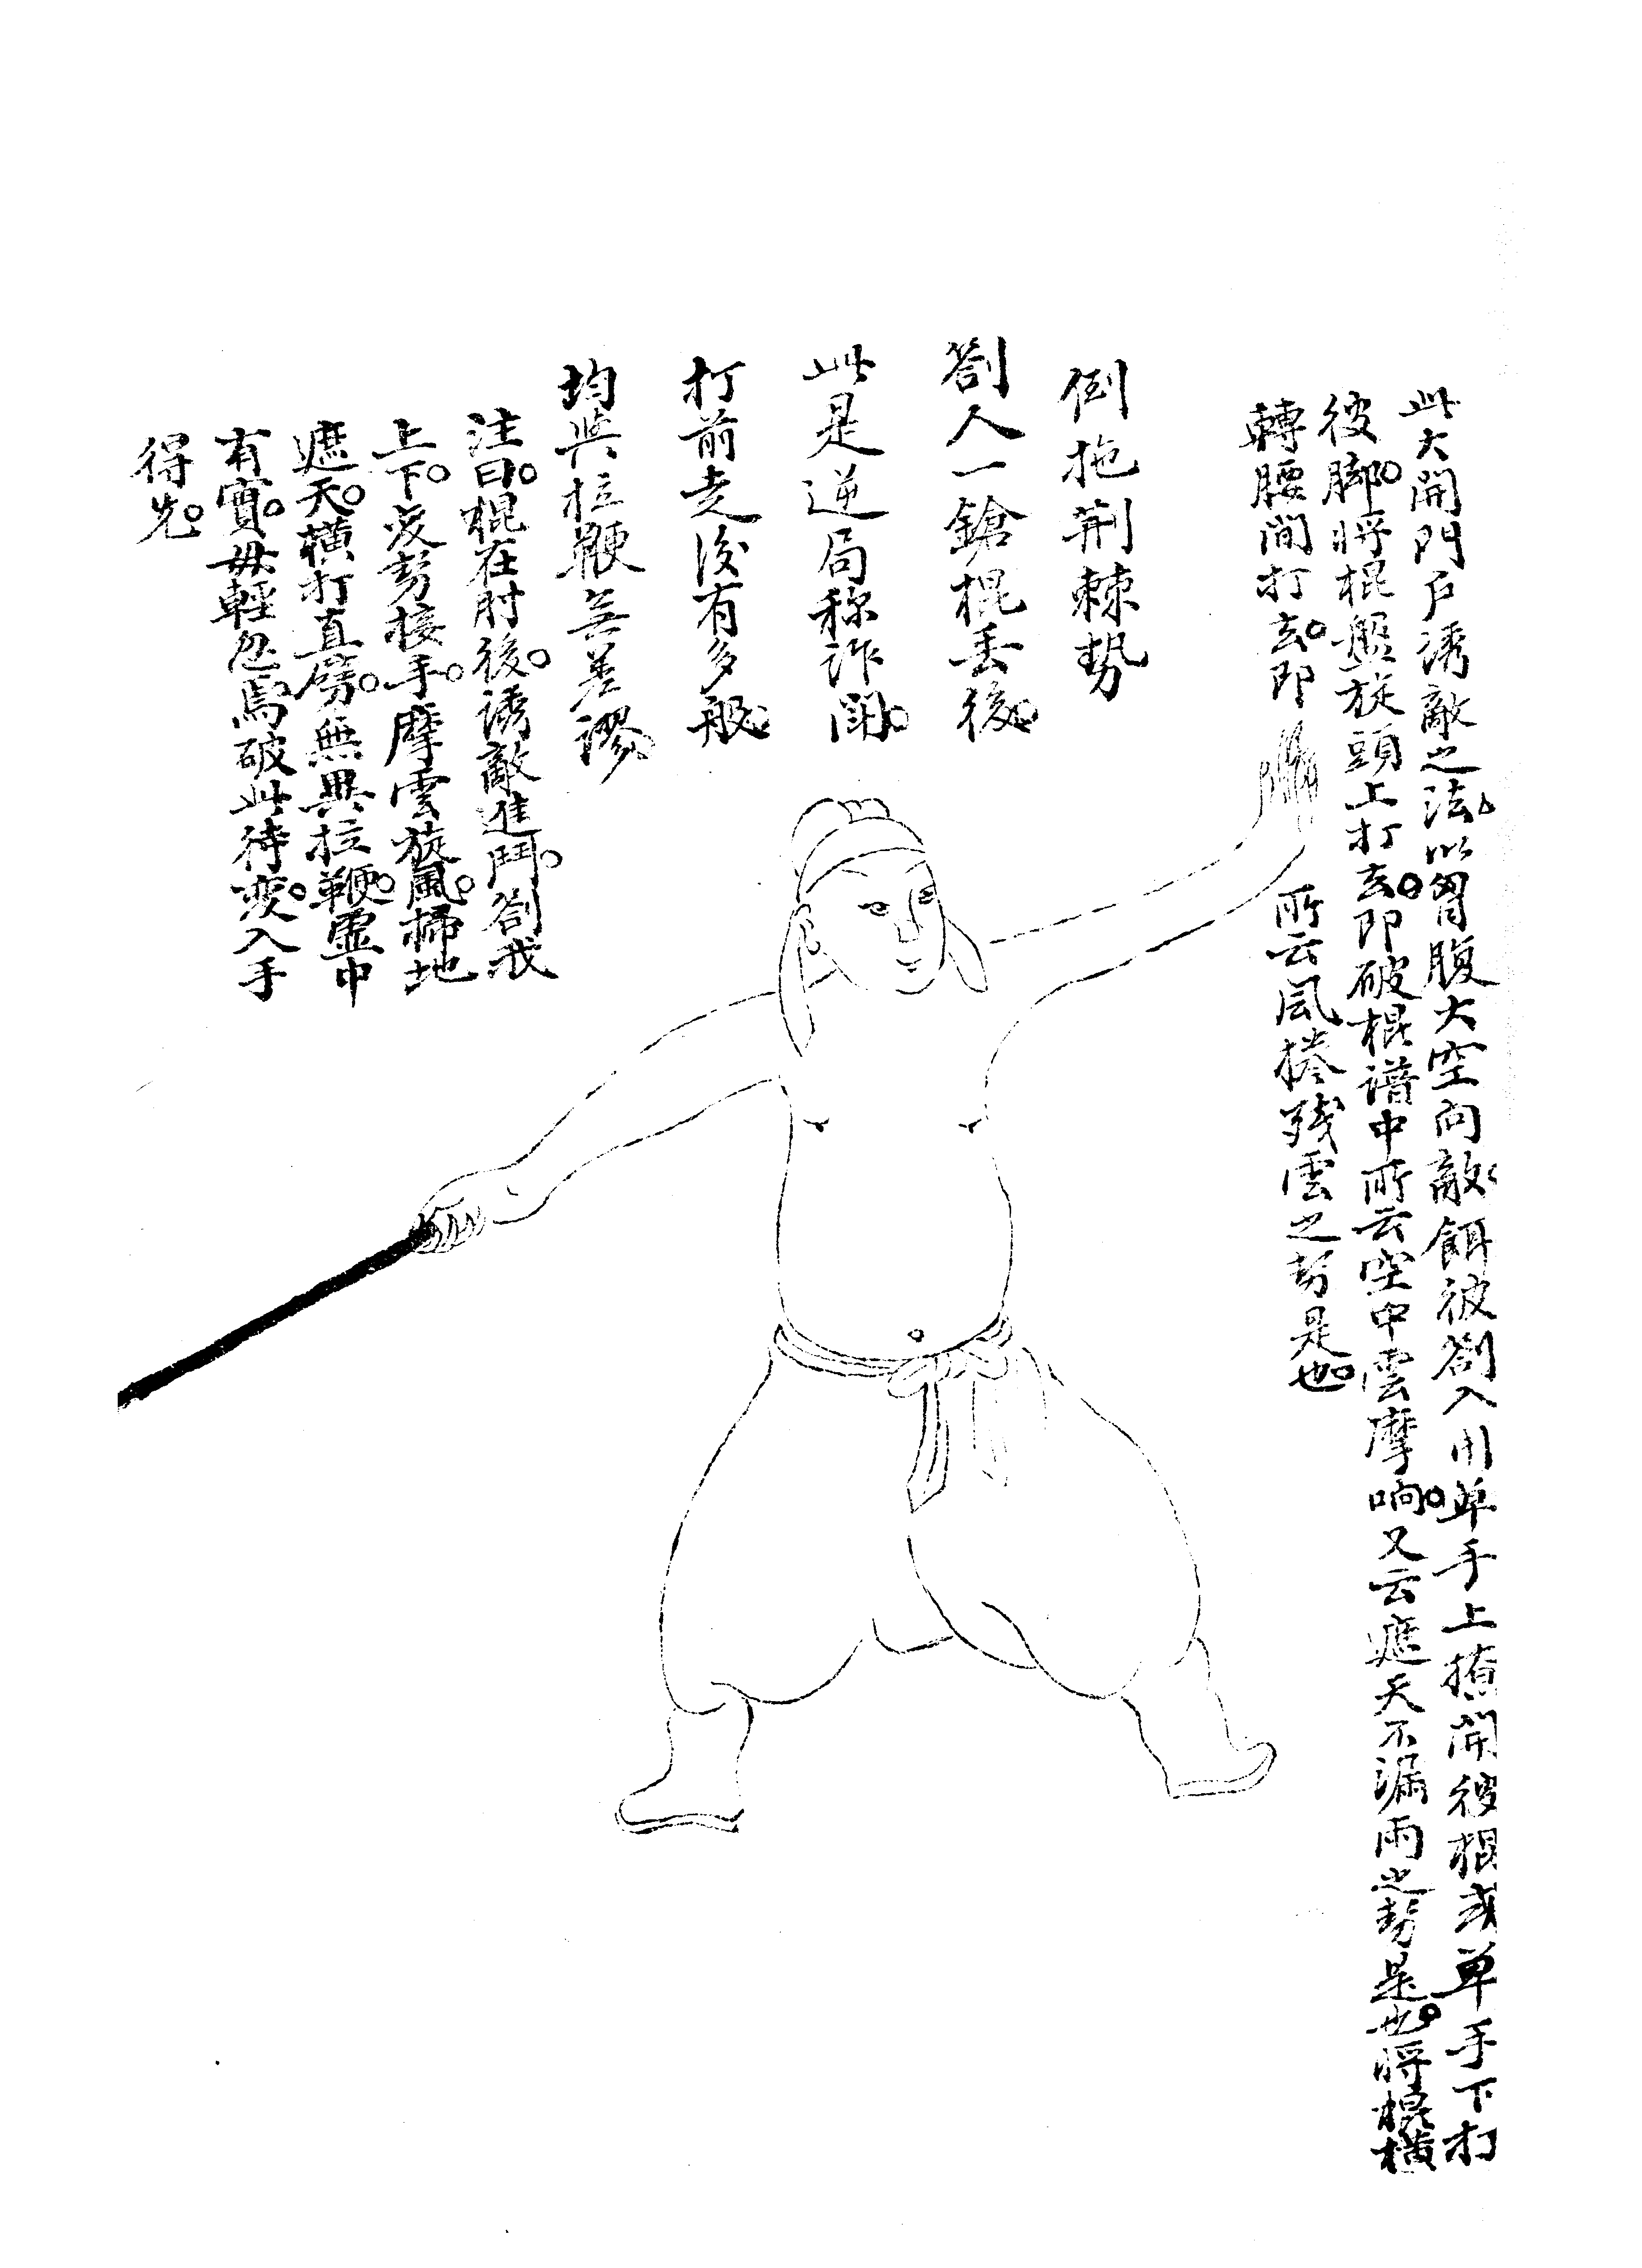 此大開門戶誘敵之法以胷腹大空向敵餌彼劄入用单手上掯開彼棍或单手下打
彼脚將棍盤旋頭上打去即破棍谱中所云空中雲摩响又云遮天不漏雨之势是也將棍横
轉腰間打去即 所云風捲残雲之势是也
倒拖荆棘勢
劄人一鎗棍丢後
此是逆局称詐開
打前走後有多般
均與拉鞭無差謬
注曰棍在肘後誘敵進鬥劄我
上下发势接手摩雲旋風掃地
遮天横打直劈無異拉鞭虛中
有實毋輕忽焉破此待变入手
得先